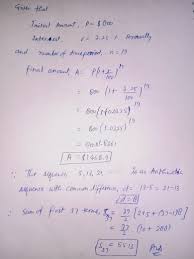 Given that
Initial Amount, P = $800
Interest, r = 2.25 % Annually
and number of time period, n = 19
final amount, A = P(1 + r/100)^n
= 800 (1 + 2.25/100)^19
= 800 (1+0.0225)^19
= 800 (1.0225)^19
The sequence, 5, 13, 21 ---- is an Arithmetic
sequence with common difference, d = 13-5 = 21-13
d = 8
Sum of first 37 terms, S37 = 37/2 [2×5 + (37-1)8]
= 37/2 (10 + 288)
S37 = 5513 Ans